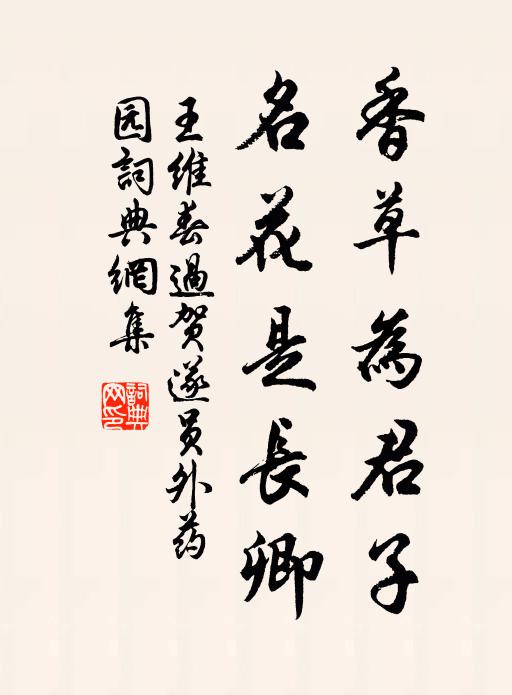 香草為君子
名花是長卿
王維春過賀遂员外药
园詞典網集
詞典
网印